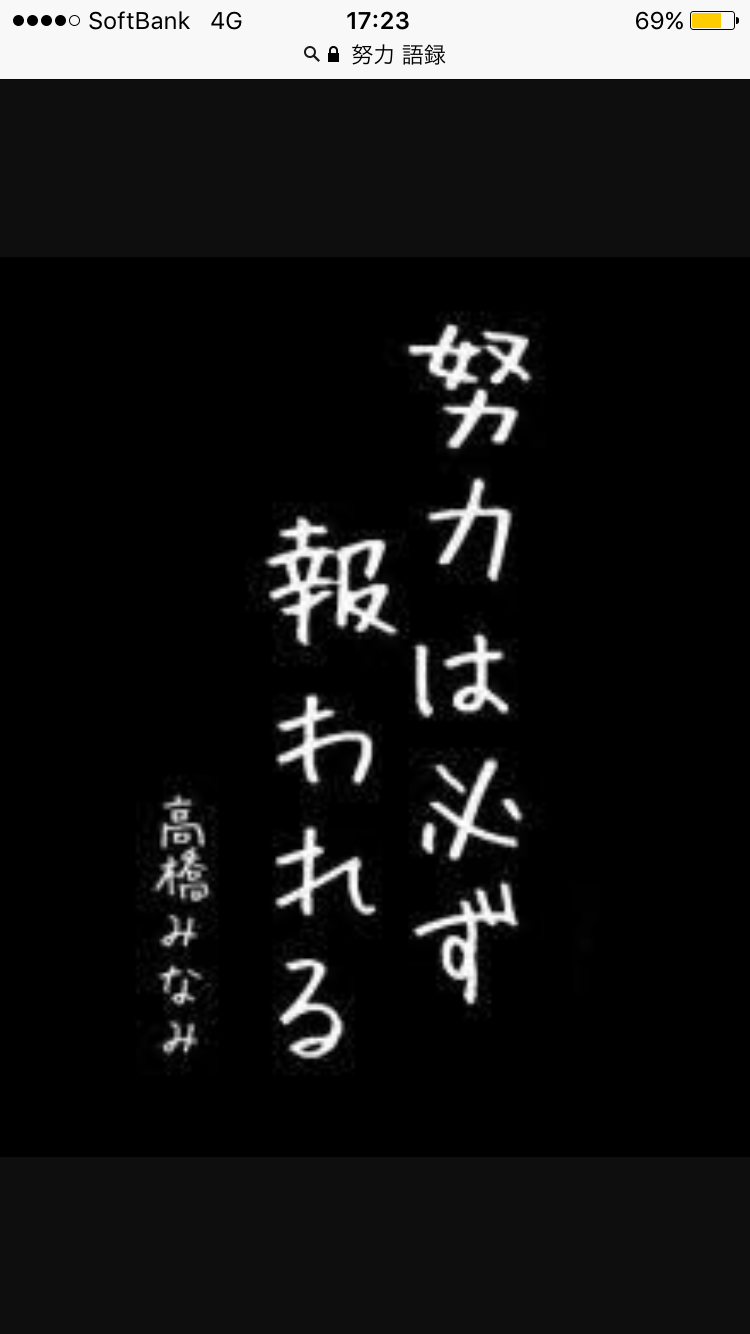 SoftBank 4G 17:23 69%
努力 語録
努力は必ず
報われる
高橋みなみ